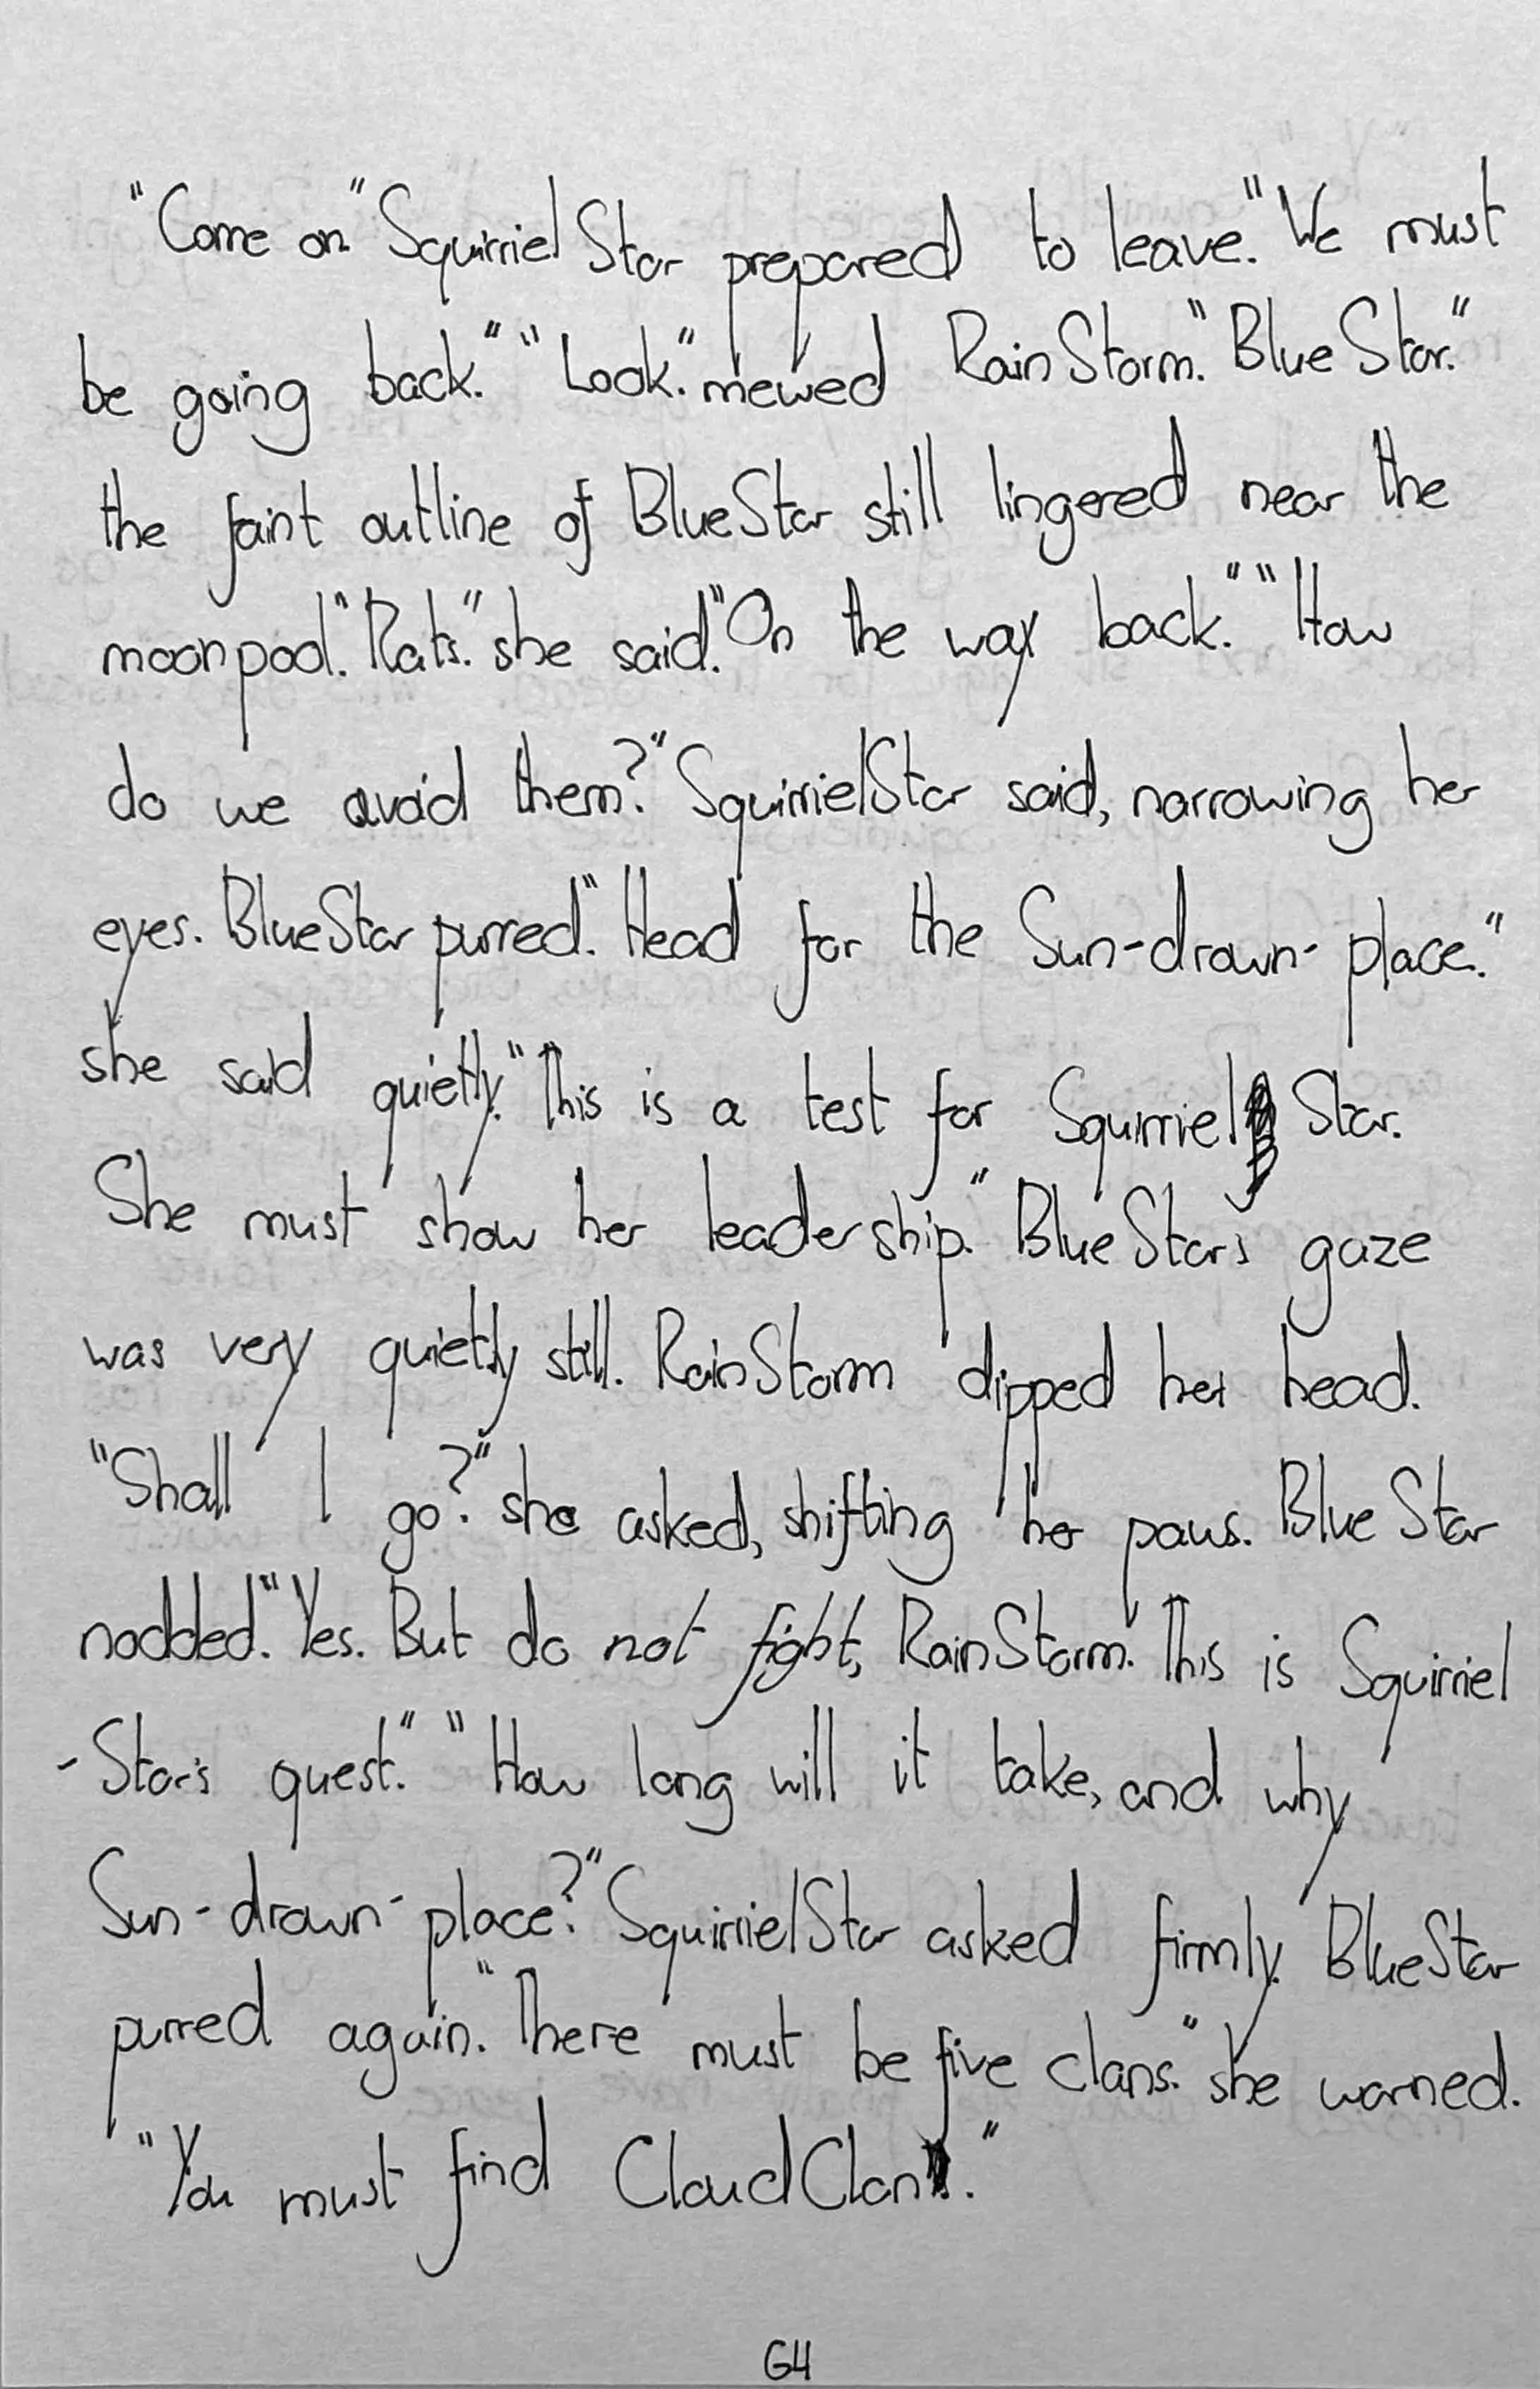 "Come on." Squirriel Star prepared to leave. "We must
be going back." "Look." mewed RainStorm. "BlueStar."
the faint outline of BlueStar still lingered near the
moonpool. "Rats." she said. "On the way back." "How
do we avoid them?" SquirrielStar said, narrowing her
eyes. BlueStar purred. "Head for the Sun-drown-place."
she said quietly. "This is a test for Squirriel Star.
She must show her leadership." BlueStar's gaze
was very quietly still. RainStorm dipped her head.
"Shall I go?" she asked, shifting her paws. BlueStar
nodded. "Yes. But do not fight, RainStorm. This is Squirriel
-Star's quest." "How long will it take, and why
Sun-drown-place?" SquirrielStar asked firmly. BlueStar
purred again. "There must be five clans." she warned.
"You must find CloudClan."
64